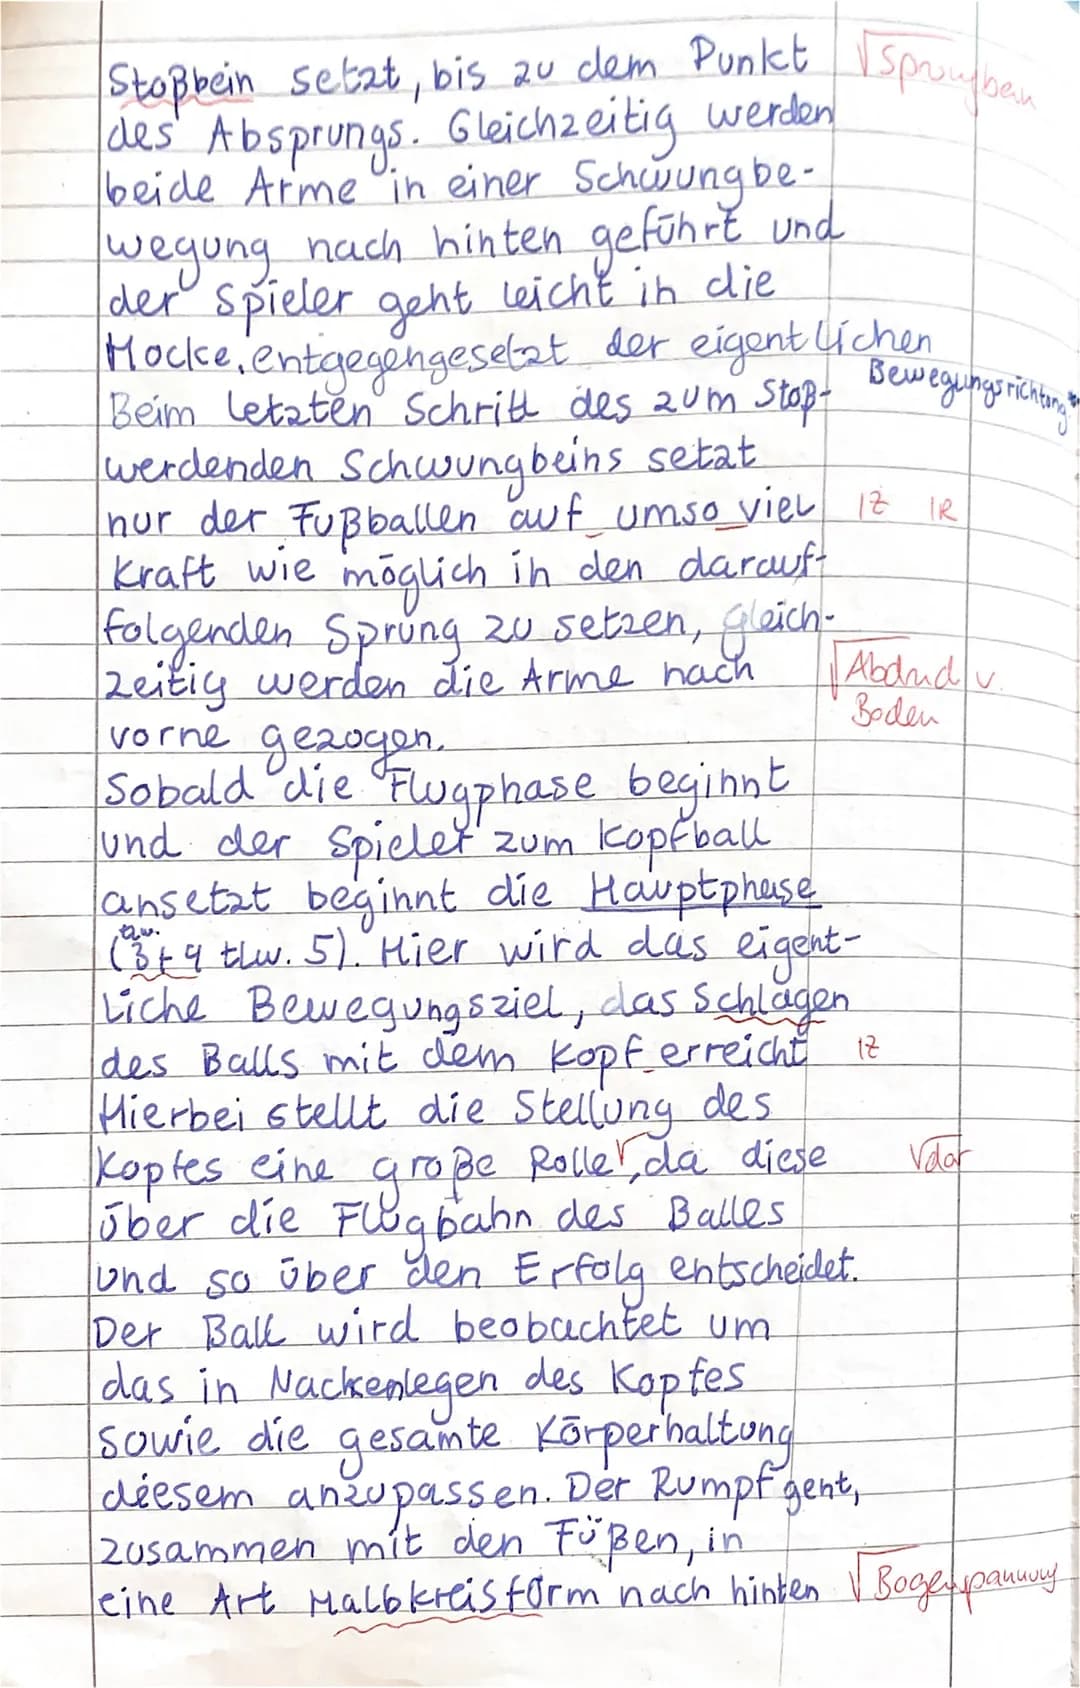 Stoßbein setzt, bis zu dem Punkt √Sprungbein
des Absprungs. Gleichzeitig werden
beide Arme in einer Schwungbe-
wegung nach hinten geführt und
der Spieler geht leicht in die
Hocke, entgegengesetzt der eigentlichen
Bewegungsrichtung
Beim letzten Schritt des zum Stoß-
werdenden Schwungbeins setzt
nur der Fußballen auf umso viel IZ IR
Kraft wie möglich in den darauf-
folgenden Sprung zu setzen, gleich-
zeitig werden die Arme nach √Abdruck v.
Boden
vorne gezogen.
Sobald die Flugphase beginnt
und der Spieler zum Kopfball
ansetzt beginnt die Hauptphase
tlw.
(3+4 tlw. 5). Hier wird das eigent-
liche Bewegungsziel, das Schlagen
des Balls mit dem Kopf erreicht IZ
Hierbei stellt die Stellung des
Kopfes eine große Rolle√, da diese √dar
über die Flugbahn des Balles
und so über den Erfolg entscheidet.
Der Ball wird beobachtet um
das in Nackenlegen des Kopfes
sowie die gesamte Körperhaltung
diesem anzupassen. Der Rumpf geht,
zusammen mit den Füßen, in
eine Art Halbkreisform nach hinten √Bogenspannung